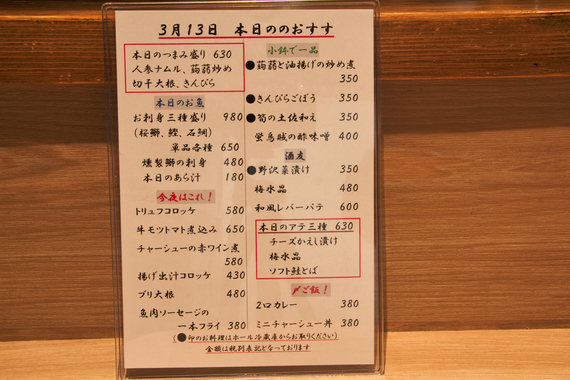 3月13日 本日ののおすす
本日のつまみ盛り 630
人参ナムル、蒟蒻炒め
切干大根、きんぴら
本日のお魚
お刺身三種盛り 980
(桜鰤、鰹、石鯛)
単品各種 650
燻製鰤の刺身 480
本日のあら汁 180
今夜はこれ!
トリュフコロッケ 580
牛モツトマト煮込み 650
チャーシューの赤ワイン煮
580
揚げ出汁コロッケ 430
ブリ大根 480
魚肉ソーセージの
一本フライ 380
小鉢で一品
●蒟蒻と油揚げの炒め煮
350
●きんぴらごぼう 350
●筍の土佐和え 350
蛍烏賊の酢味噌 400
酒友
●野沢菜漬け 350
梅水晶 480
和風レバーパテ 600
本日のアテ三種 630
チーズかえし漬け
梅水晶
ソフト鮭とば
〆ご飯!
2口カレー 380
ミニチャーシュー丼 380
(●印のお料理はホール冷蔵庫からお取りください)
金額は税別表記となっております